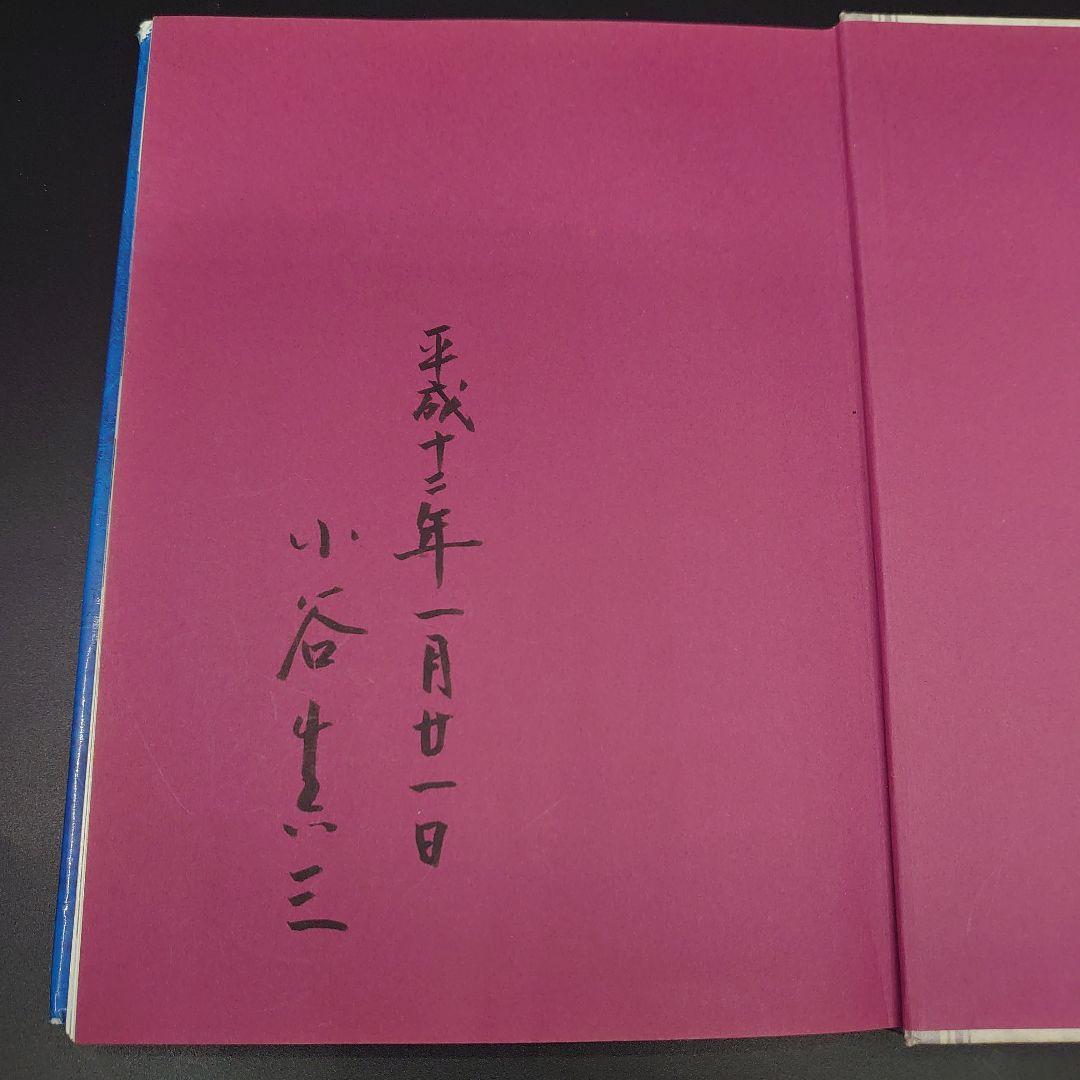 平成十二年一月廿一日
小谷真三